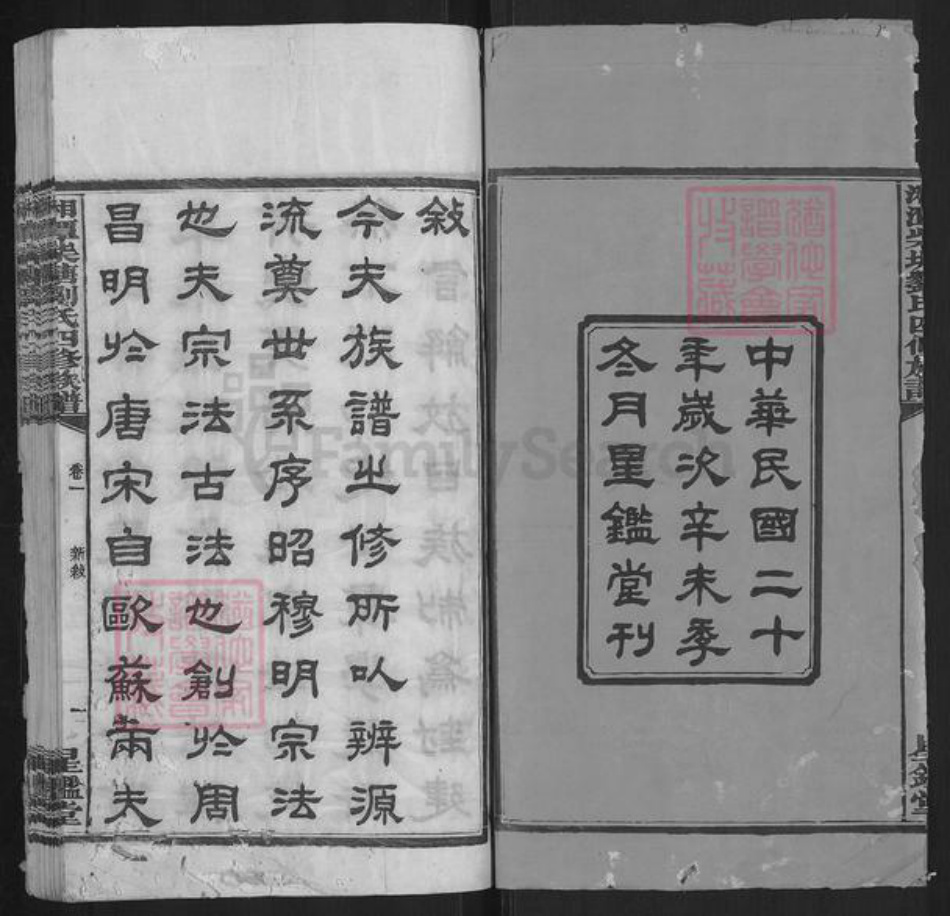 中華民國二十
年歲次辛未季
冬月星鑑堂刊
敘
今夫族譜之修所以辨源
流奠世系序昭穆明宗法
也夫宗法古法也創於周
昌明於唐宋自歐蘇兩夫
湘潭 劉氏四修族譜
卷一
新敘
一
星鑑堂
FamilySearch